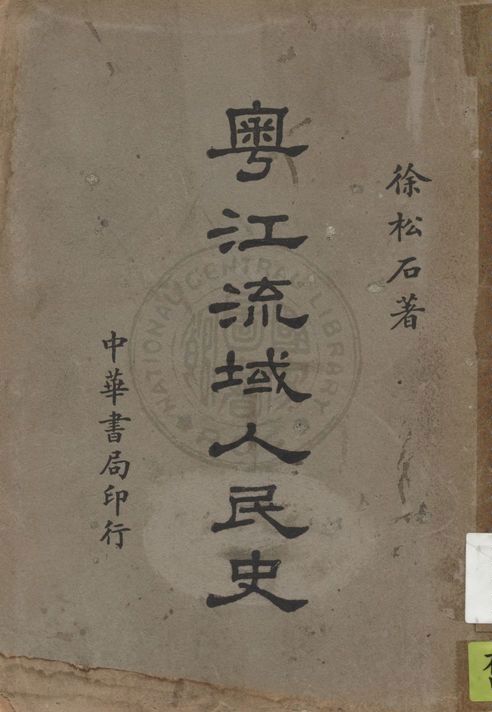 徐松石著
粵江流域人民史
中華書局印行
NATIONAL CENTRAL LIBRARY